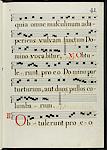 41
quia omne masculinum ada-
periens vulvam sanctum Do-
mino vocabitur. Obtu-
lerunt pro eo Domino par
turturum, aut duos pullos
columbarum.
Obtulerunt pro eo